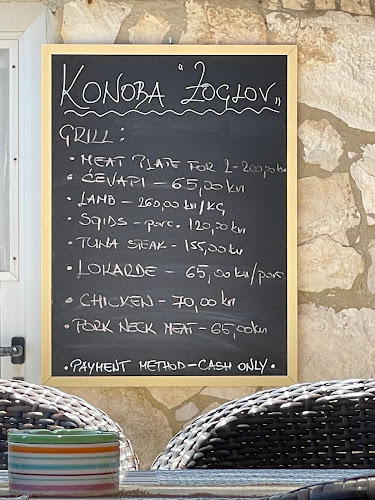 KONOBA "ŽOGLOV"
GRILL:
• MEAT PLATE FOR 2-200,00 kn
• ĆEVAPI - 65,00 kn
• LAMB - 260,00 kn/KG
• SQIDS - porc. 120,00 kn
• TUNA STEAK - 155,00 kn
• LOKARDE - 65,00 kn/porc
• CHICKEN - 70,00 kn
• PORK NECK MEAT - 65,00 kn
• PAYMENT METHOD - CASH ONLY •